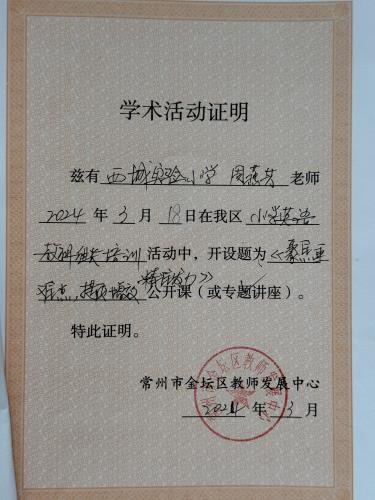 学术活动证明
兹有西城实验小学 周燕芬 老师
2024年3月18日在我区小学英语
教研组长培训活动中，开设题为《聚焦重
难点，提质增效 精准发力》公开课（或专题讲座）。
特此证明。
常州市金坛区教师发展中心
2024年3月